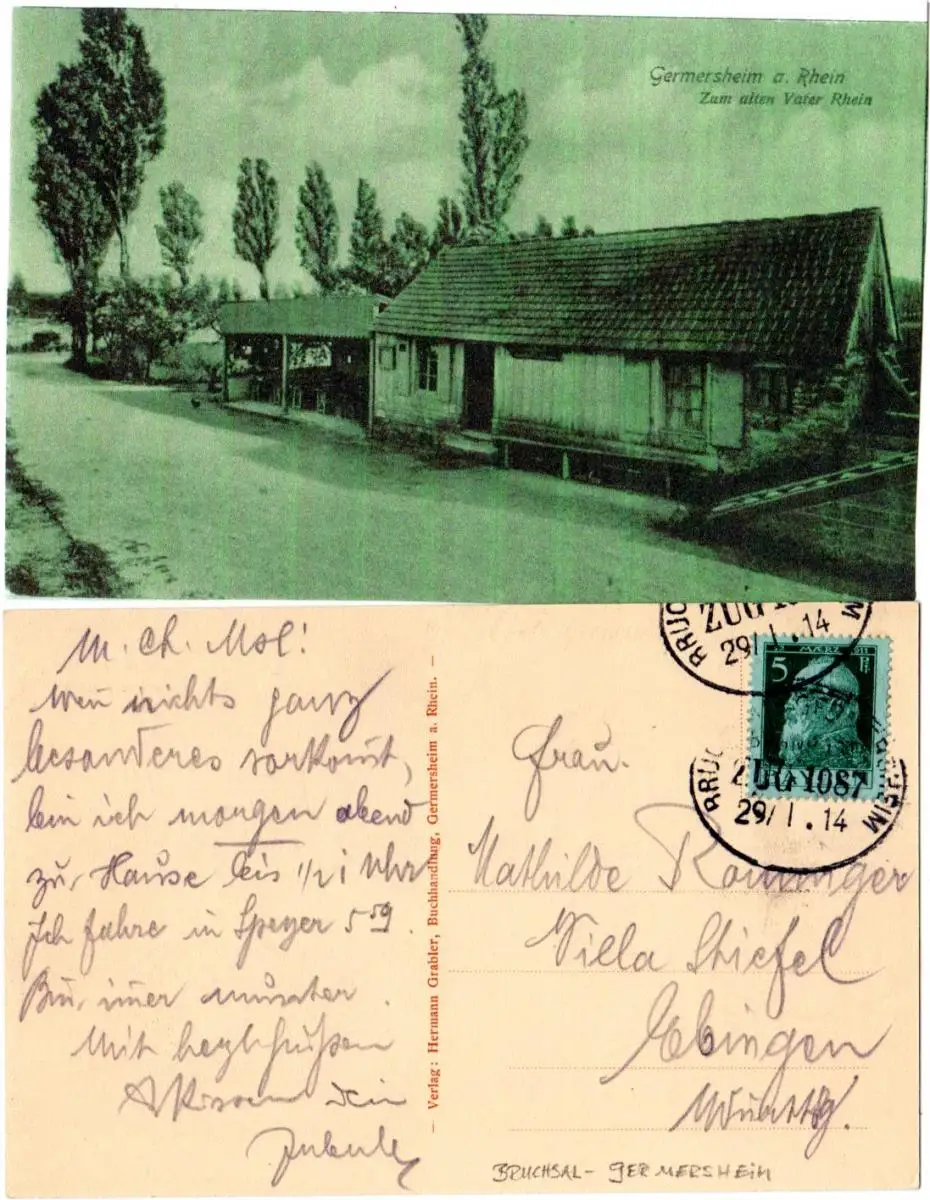 Germersheim a. Rhein
Zum alten Vater Rhein
M. Ch. Mol!
wen nichts ganz
besonderes vorkomt,
bin ich morgen abend
zu Hause bis 1/2 1 Uhr
Ich fahre in Speyer 5 59.
Bin imer munter.
Mit herzl. Grüßen
dein
— Verlag: Hermann Grabler, Buchhandlung, Germersheim a. Rhein. —
ZUG
29/1.14
12 MÄRZ 1911
5 Pf
ZUG 1087
29/1.14
Frau.
Mathilde
Villa Stiefel
Ebingen
Württbg.
BRUCHSAL - GERMERSHEIM